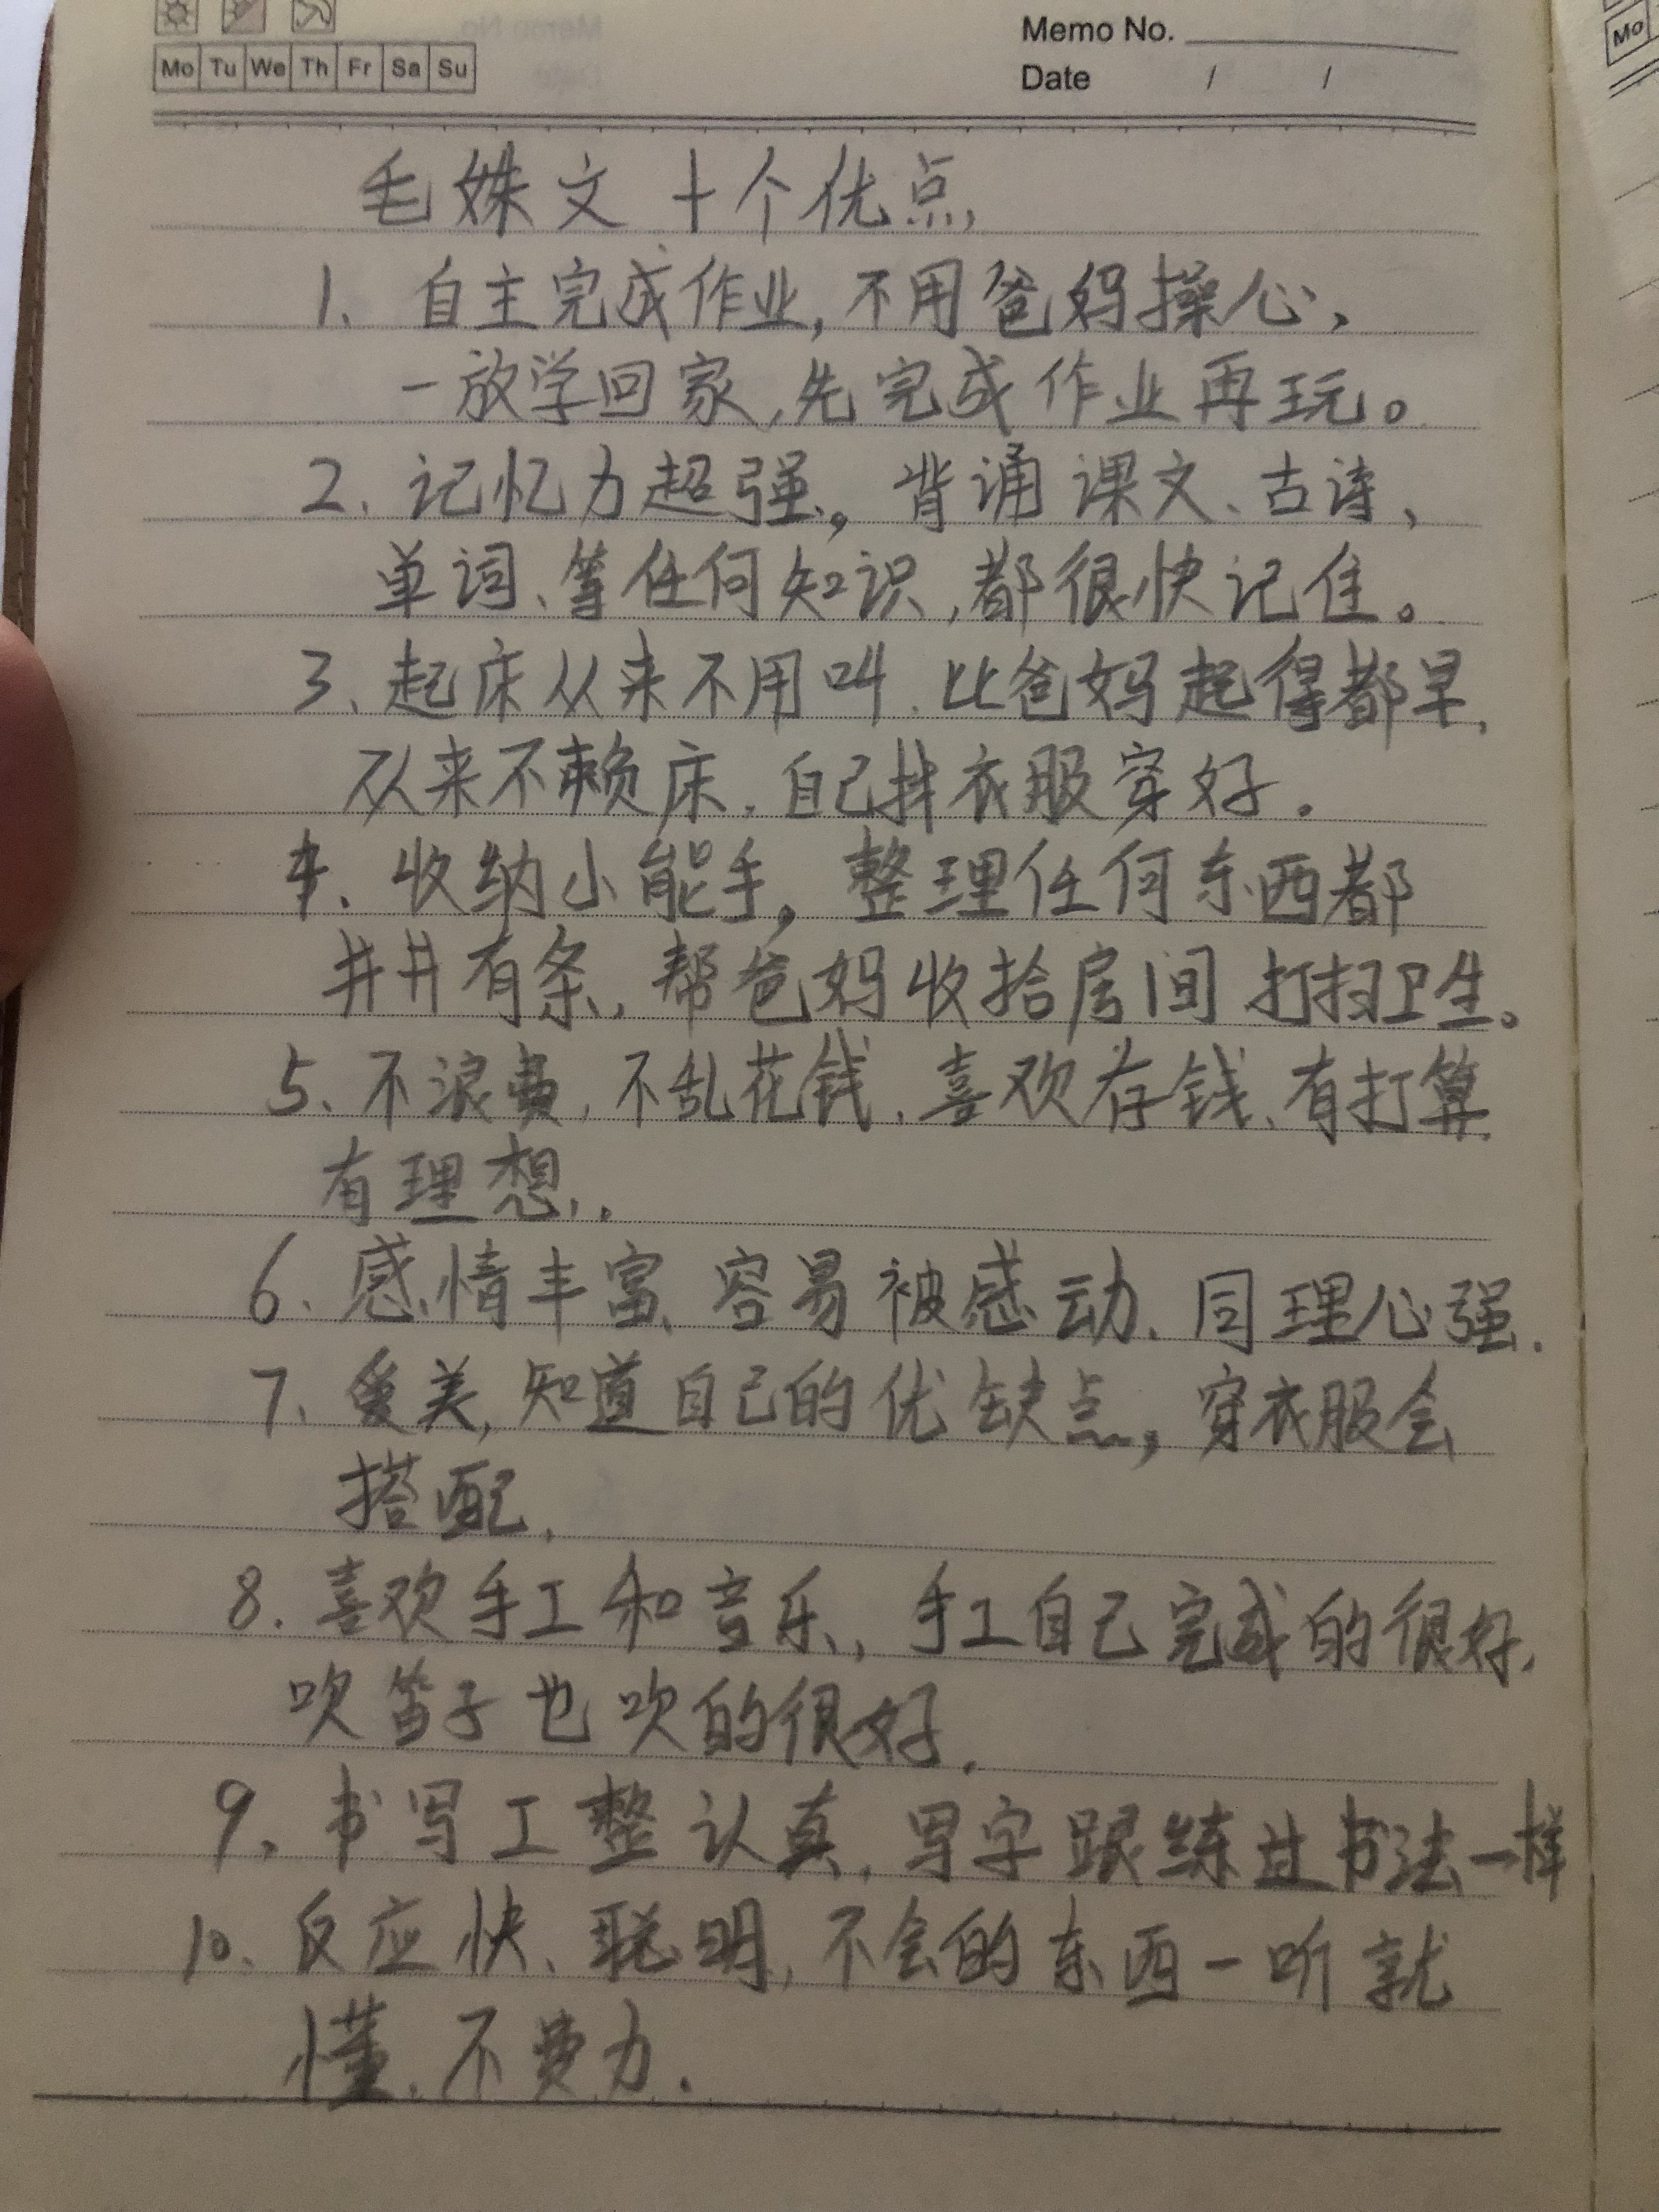 Memo No.
Mo Tu We Th Fr Sa Su
Date / /
Mo
毛姝文 十个优点
1、自主完成作业,不用爸妈操心、
一放学回家,先完成作业再玩。
2、记忆力超强,背诵课文、古诗、
单词、等任何知识,都很快记住。
3、起床从来不用叫.比爸妈起得都早,
从来不赖床,自己找衣服穿好.
4、收纳小能手,整理任何东西都
井井有条,帮爸妈收拾房间 打扫卫生。
5、不浪费,不乱花钱,喜欢存钱、有打算
有理想.
6、感情丰富、容易被感动、同理心强.
7、爱美,知道自己的优缺点,穿衣服会
搭配.
8.喜欢手工和音乐,手工自己完成的很好,
吹笛子也吹的很好.
9、书写工整认真,写字跟练过书法一样
10、反应快、聪明,不会的东西一听就
懂,不费力.